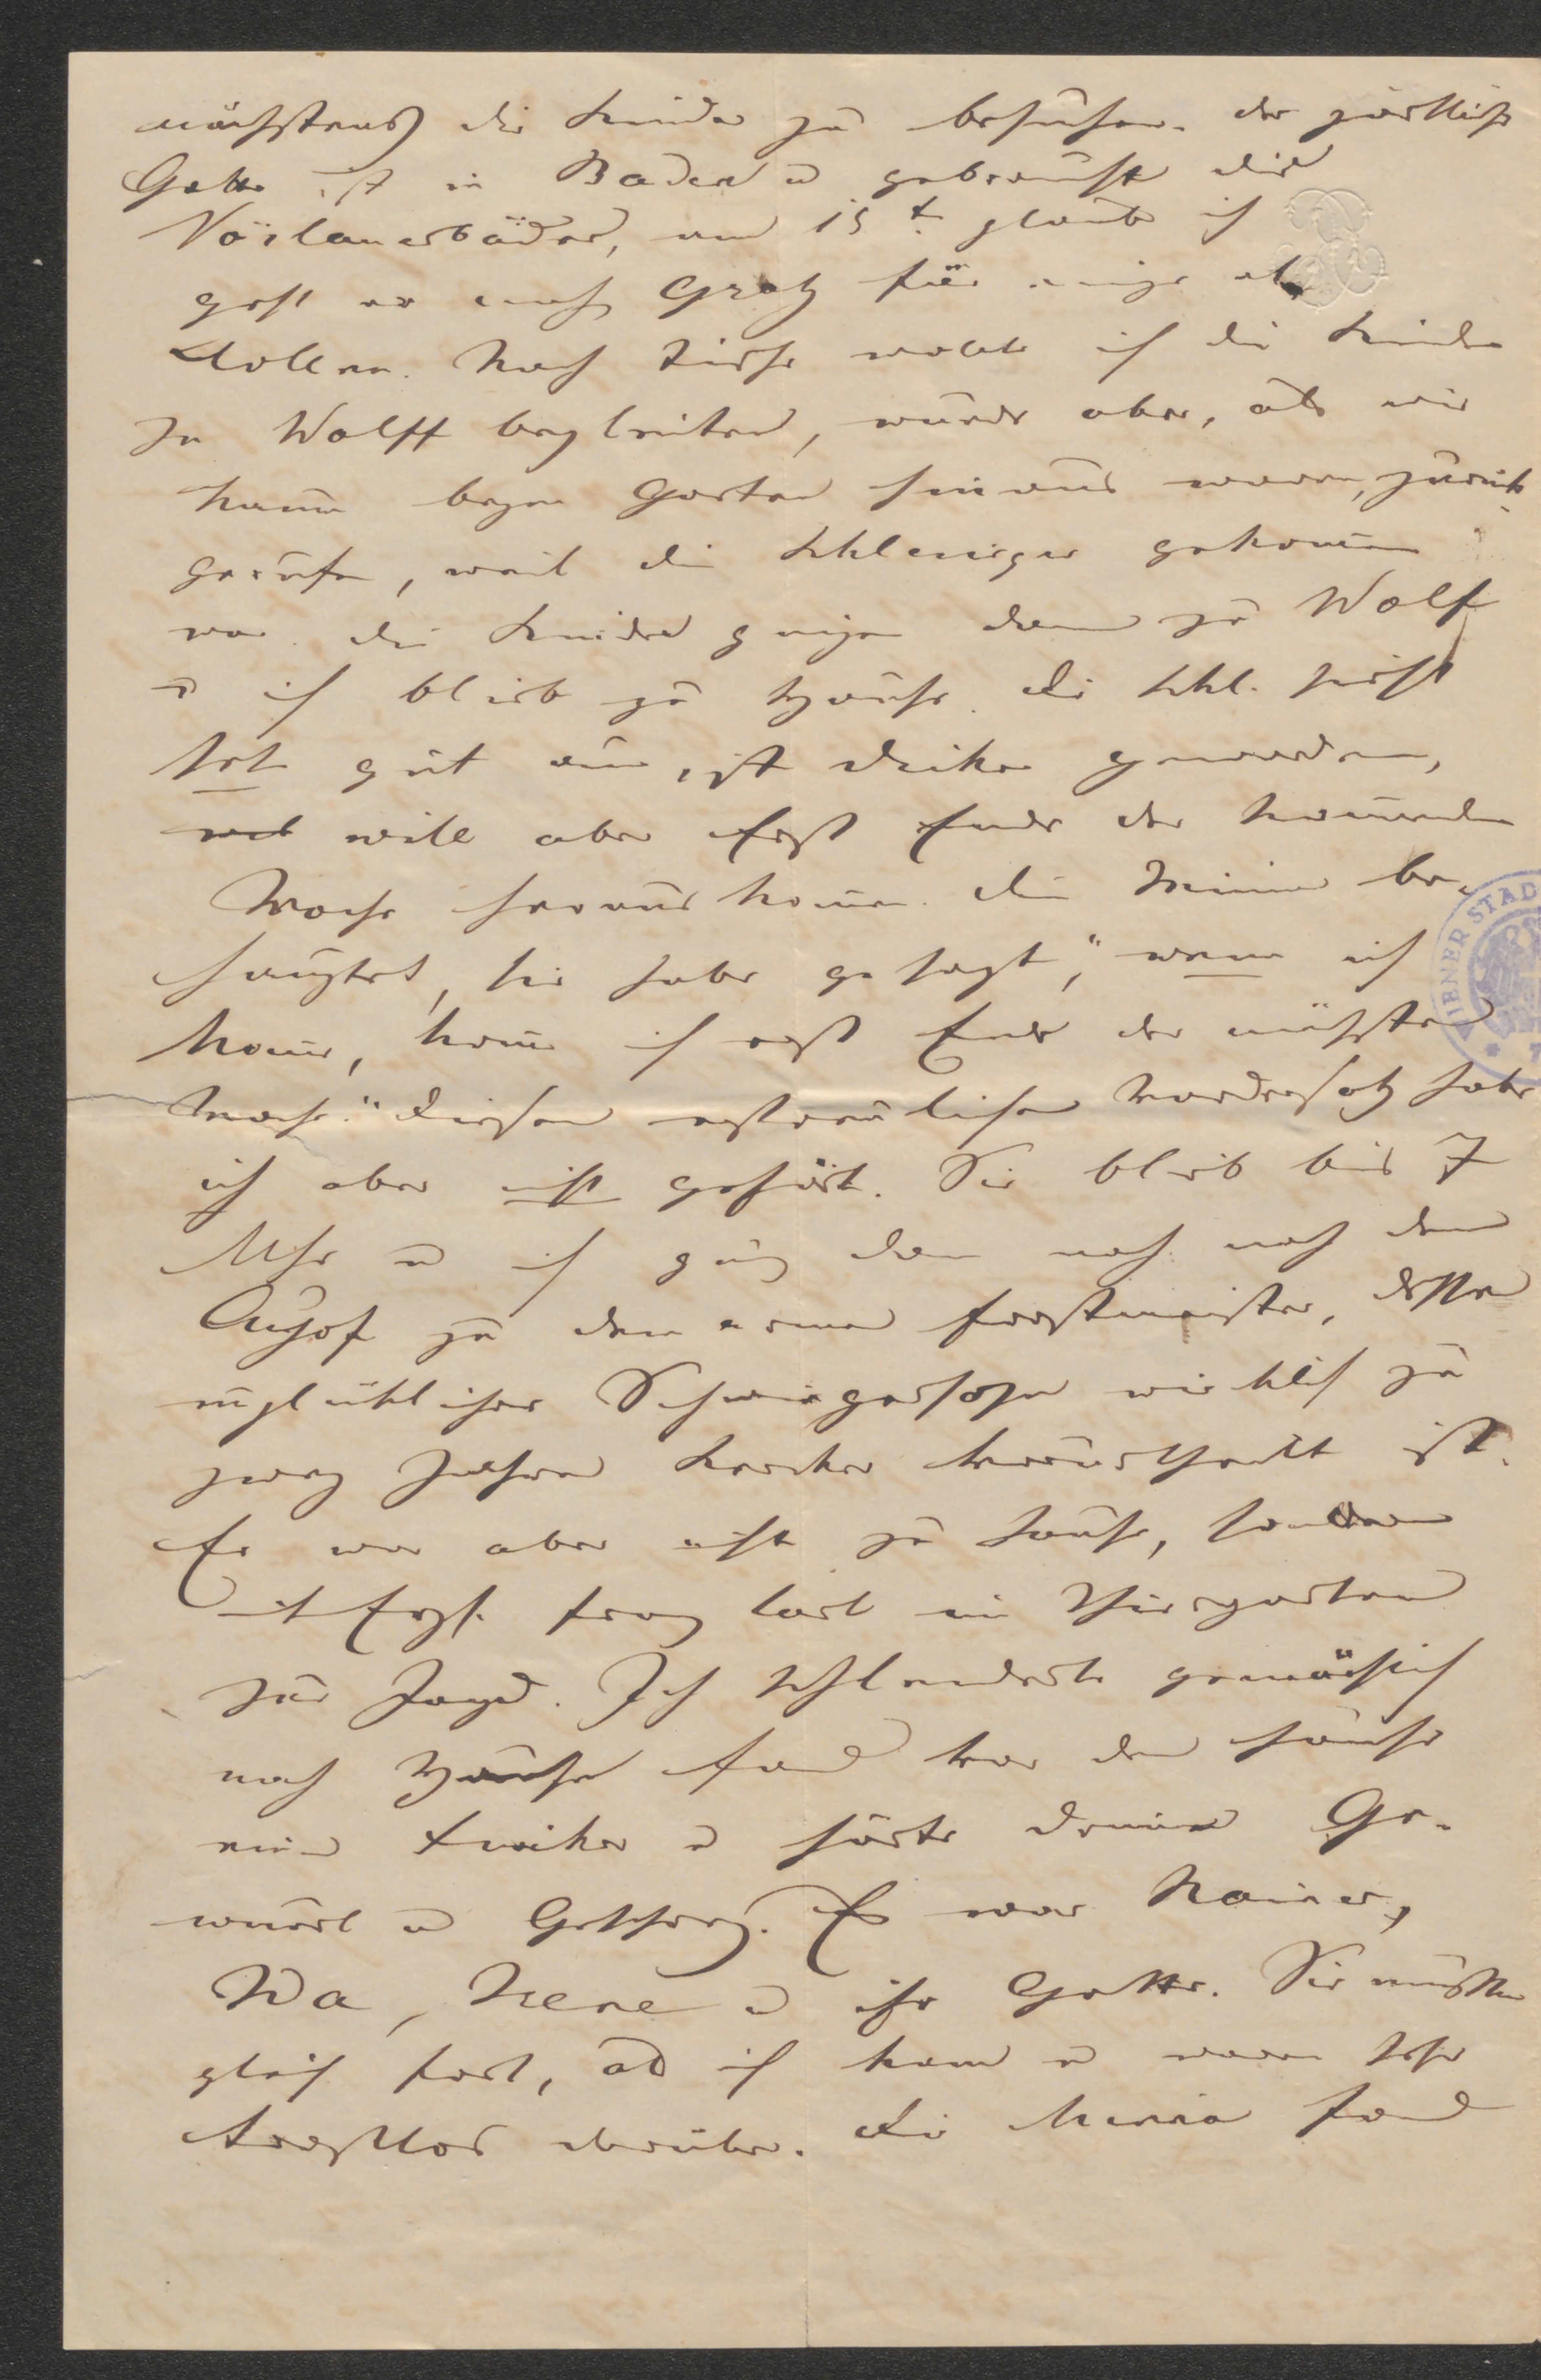 nächstens die Kinder zu besuchen. der zärtliche
Gatte ist in Baden u gebraucht die
Vöslauerbäder, am 15t glaube ich
geht er nach Gratz für einige
Rollen. Nach Tische wollte ich die Kinder
zu Wolff begleiten, wurde aber, als wir
kaum beym Garten hinaus waren, zurück
gerufen, weil die Schleniger gekom̅en
war. die Kinder gingen dann zu Wolf
u ich blieb zu Hause. die Schl. sieht
sehr gut aus, ist dicker geworden,
will aber erst Ende der kom̅enden
Woche herauskom̅en. die Minna be-
hauptet, sie habe gesagt, "wenn ich
kom̅e, kom̅e ich erst Ende der nächsten
Woche." diesen erfreulichen Vordersatz habe
ich aber nicht gehört. Sie blieb bis 7
Uhr u ich ging dann noch nach dem
Auhof zu dem armen Forstmeister, dessen
unglücklicher Schwiegersohn wirklich zu
zwey Jahren Kerker verurtheilt ist.
Er war aber nicht zu Hause, sondern
mit Erzh. Franz Carl im Thiergarten
zur Jagd. Ich schlenderte gemächlich
nach Hause fand vor dem Hause
einen Fiaker u hörte drinnen Ge-
wurl u Geschrey. Es war Rainer,
Ida, Irene u ihr Gatte. Sie mußten
gleich fort, als ich kam u waren sehr
trostlos darüber. die Maria fand
WIENER STAD